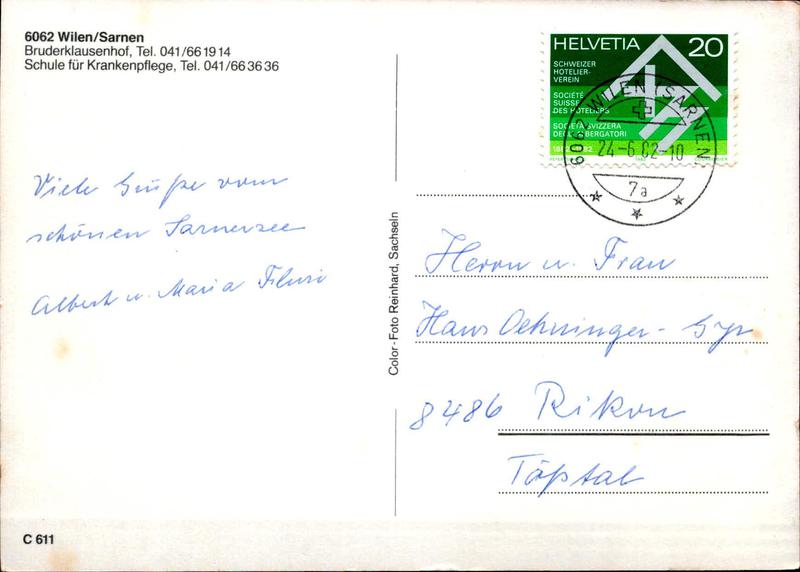 6062 Wilen/Sarnen
Bruderklausenhof, Tel. 041/66 19 14
Schule für Krankenpflege, Tel. 041/66 36 36
HELVETIA 20
SCHWEIZER
HOTELIER-
VEREIN
SOCIÉTÉ
SUISSE
DES HOTELIERS
SOCIETÀ SVIZZERA
DEGLI ALBERGATORI
6062 WILEN (SARNEN)
24-6.82-10
7a
Viele Grüße vom
schönen Sarnersee
Albert u. Maria
Color-Foto Reinhard, Sachseln
Herrn u. Frau
Hans Oehninger-
8486 Rikon
Tößtal
C 611